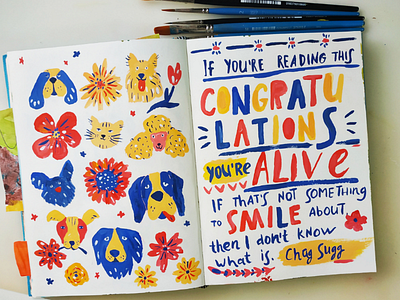 IF YOU'RE READING THIS
CONGRATU
LATIONS
YOU'RE ALIVE
IF THAT'S NOT SOMETHING
TO SMILE ABOUT,
then I don't KNOW
what is. Chag Sugg